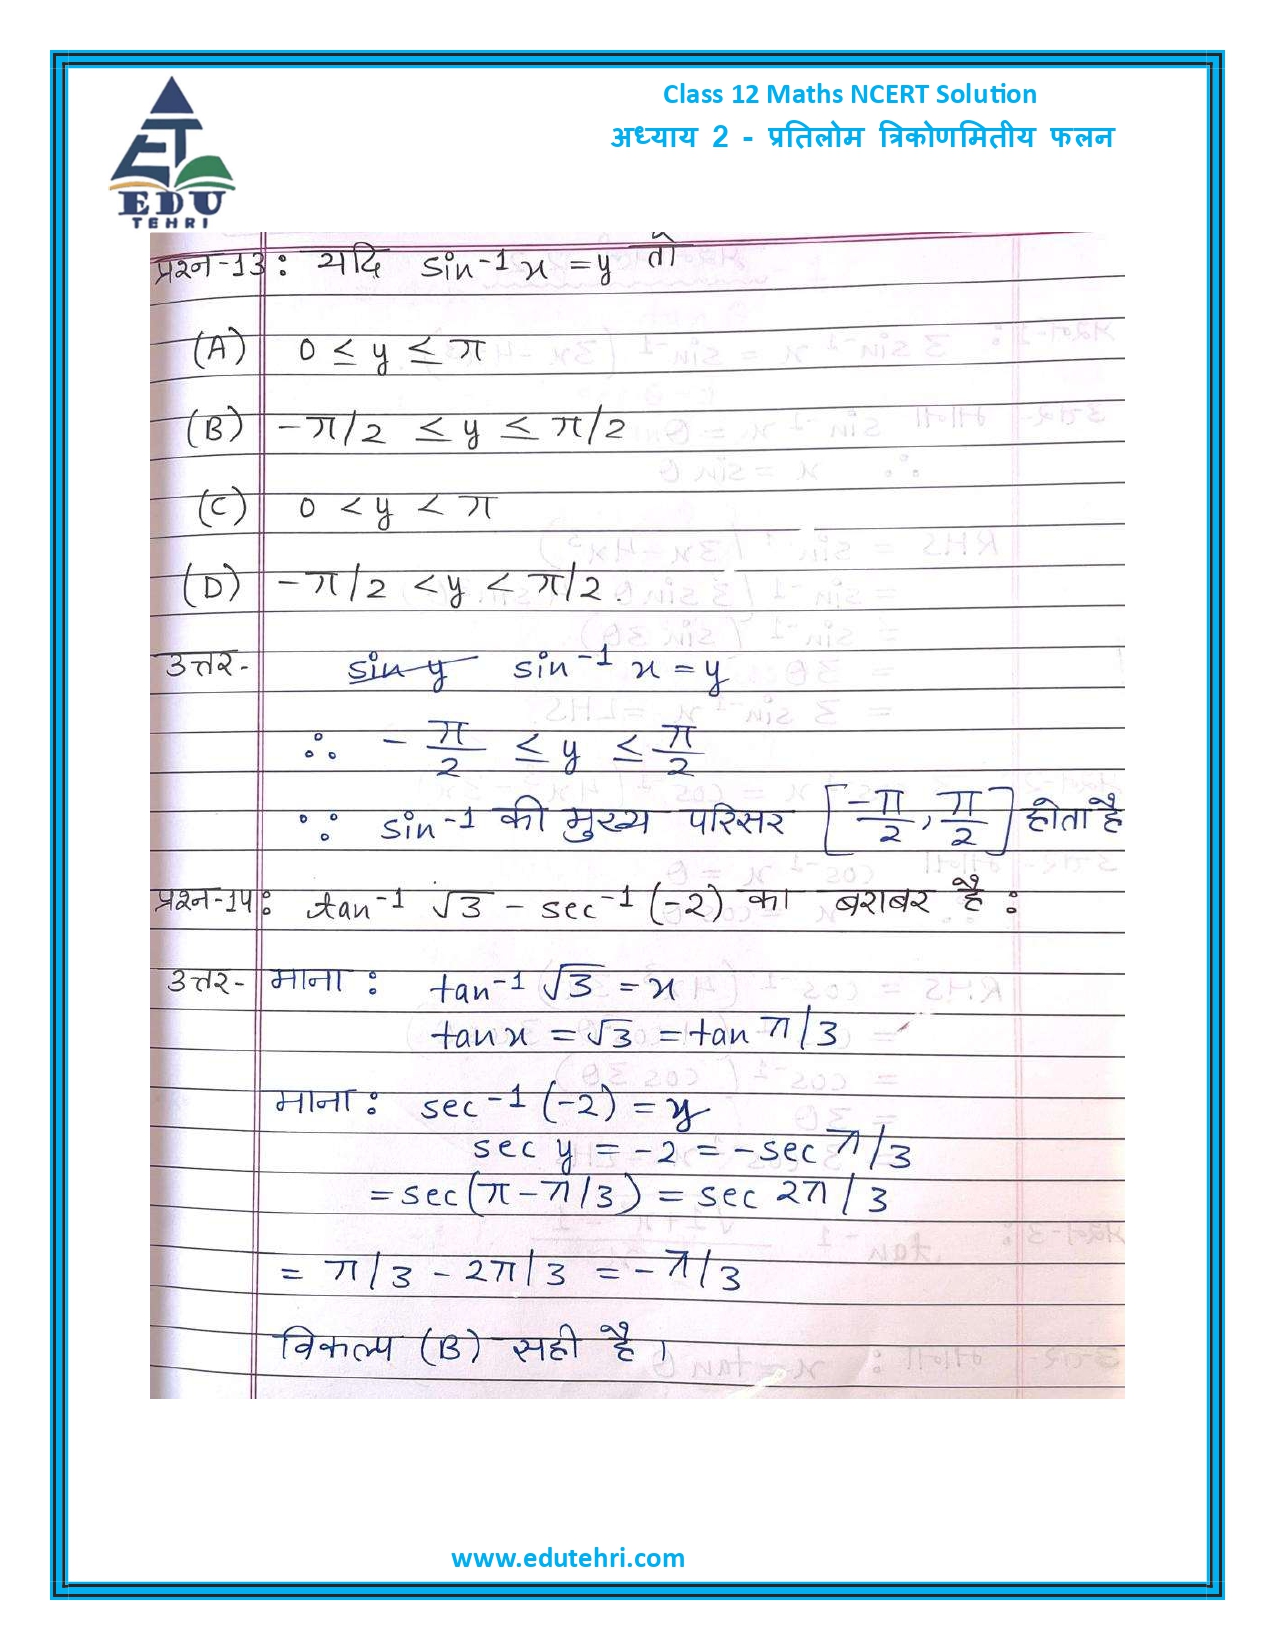 Class 12 Maths NCERT Solution
अध्याय 2 - प्रतिलोम त्रिकोणमितीय फलन
EDU
TEHRI
प्रश्न-13: यदि sin⁻¹ x = y तो
(A) 0 ≤ y ≤ π
(B) -π/2 ≤ y ≤ π/2
(C) 0 < y < π
(D) -π/2 < y < π/2.
उत्तर- sin y sin⁻¹ x = y
∴ -π/2 ≤ y ≤ π/2
∵ sin⁻¹ की मुख्य परिसर [-π/2, π/2] होता है
प्रश्न-14: tan⁻¹ √3 - sec⁻¹ (-2) का बराबर है :
उत्तर- माना : tan⁻¹ √3 = x
tan x = √3 = tan π/3
माना : sec⁻¹ (-2) = y
sec y = -2 = -sec π/3
= sec(π - π/3) = sec 2π/3
= π/3 - 2π/3 = -π/3
विकल्प (B) सही है।
www.edutehri.com